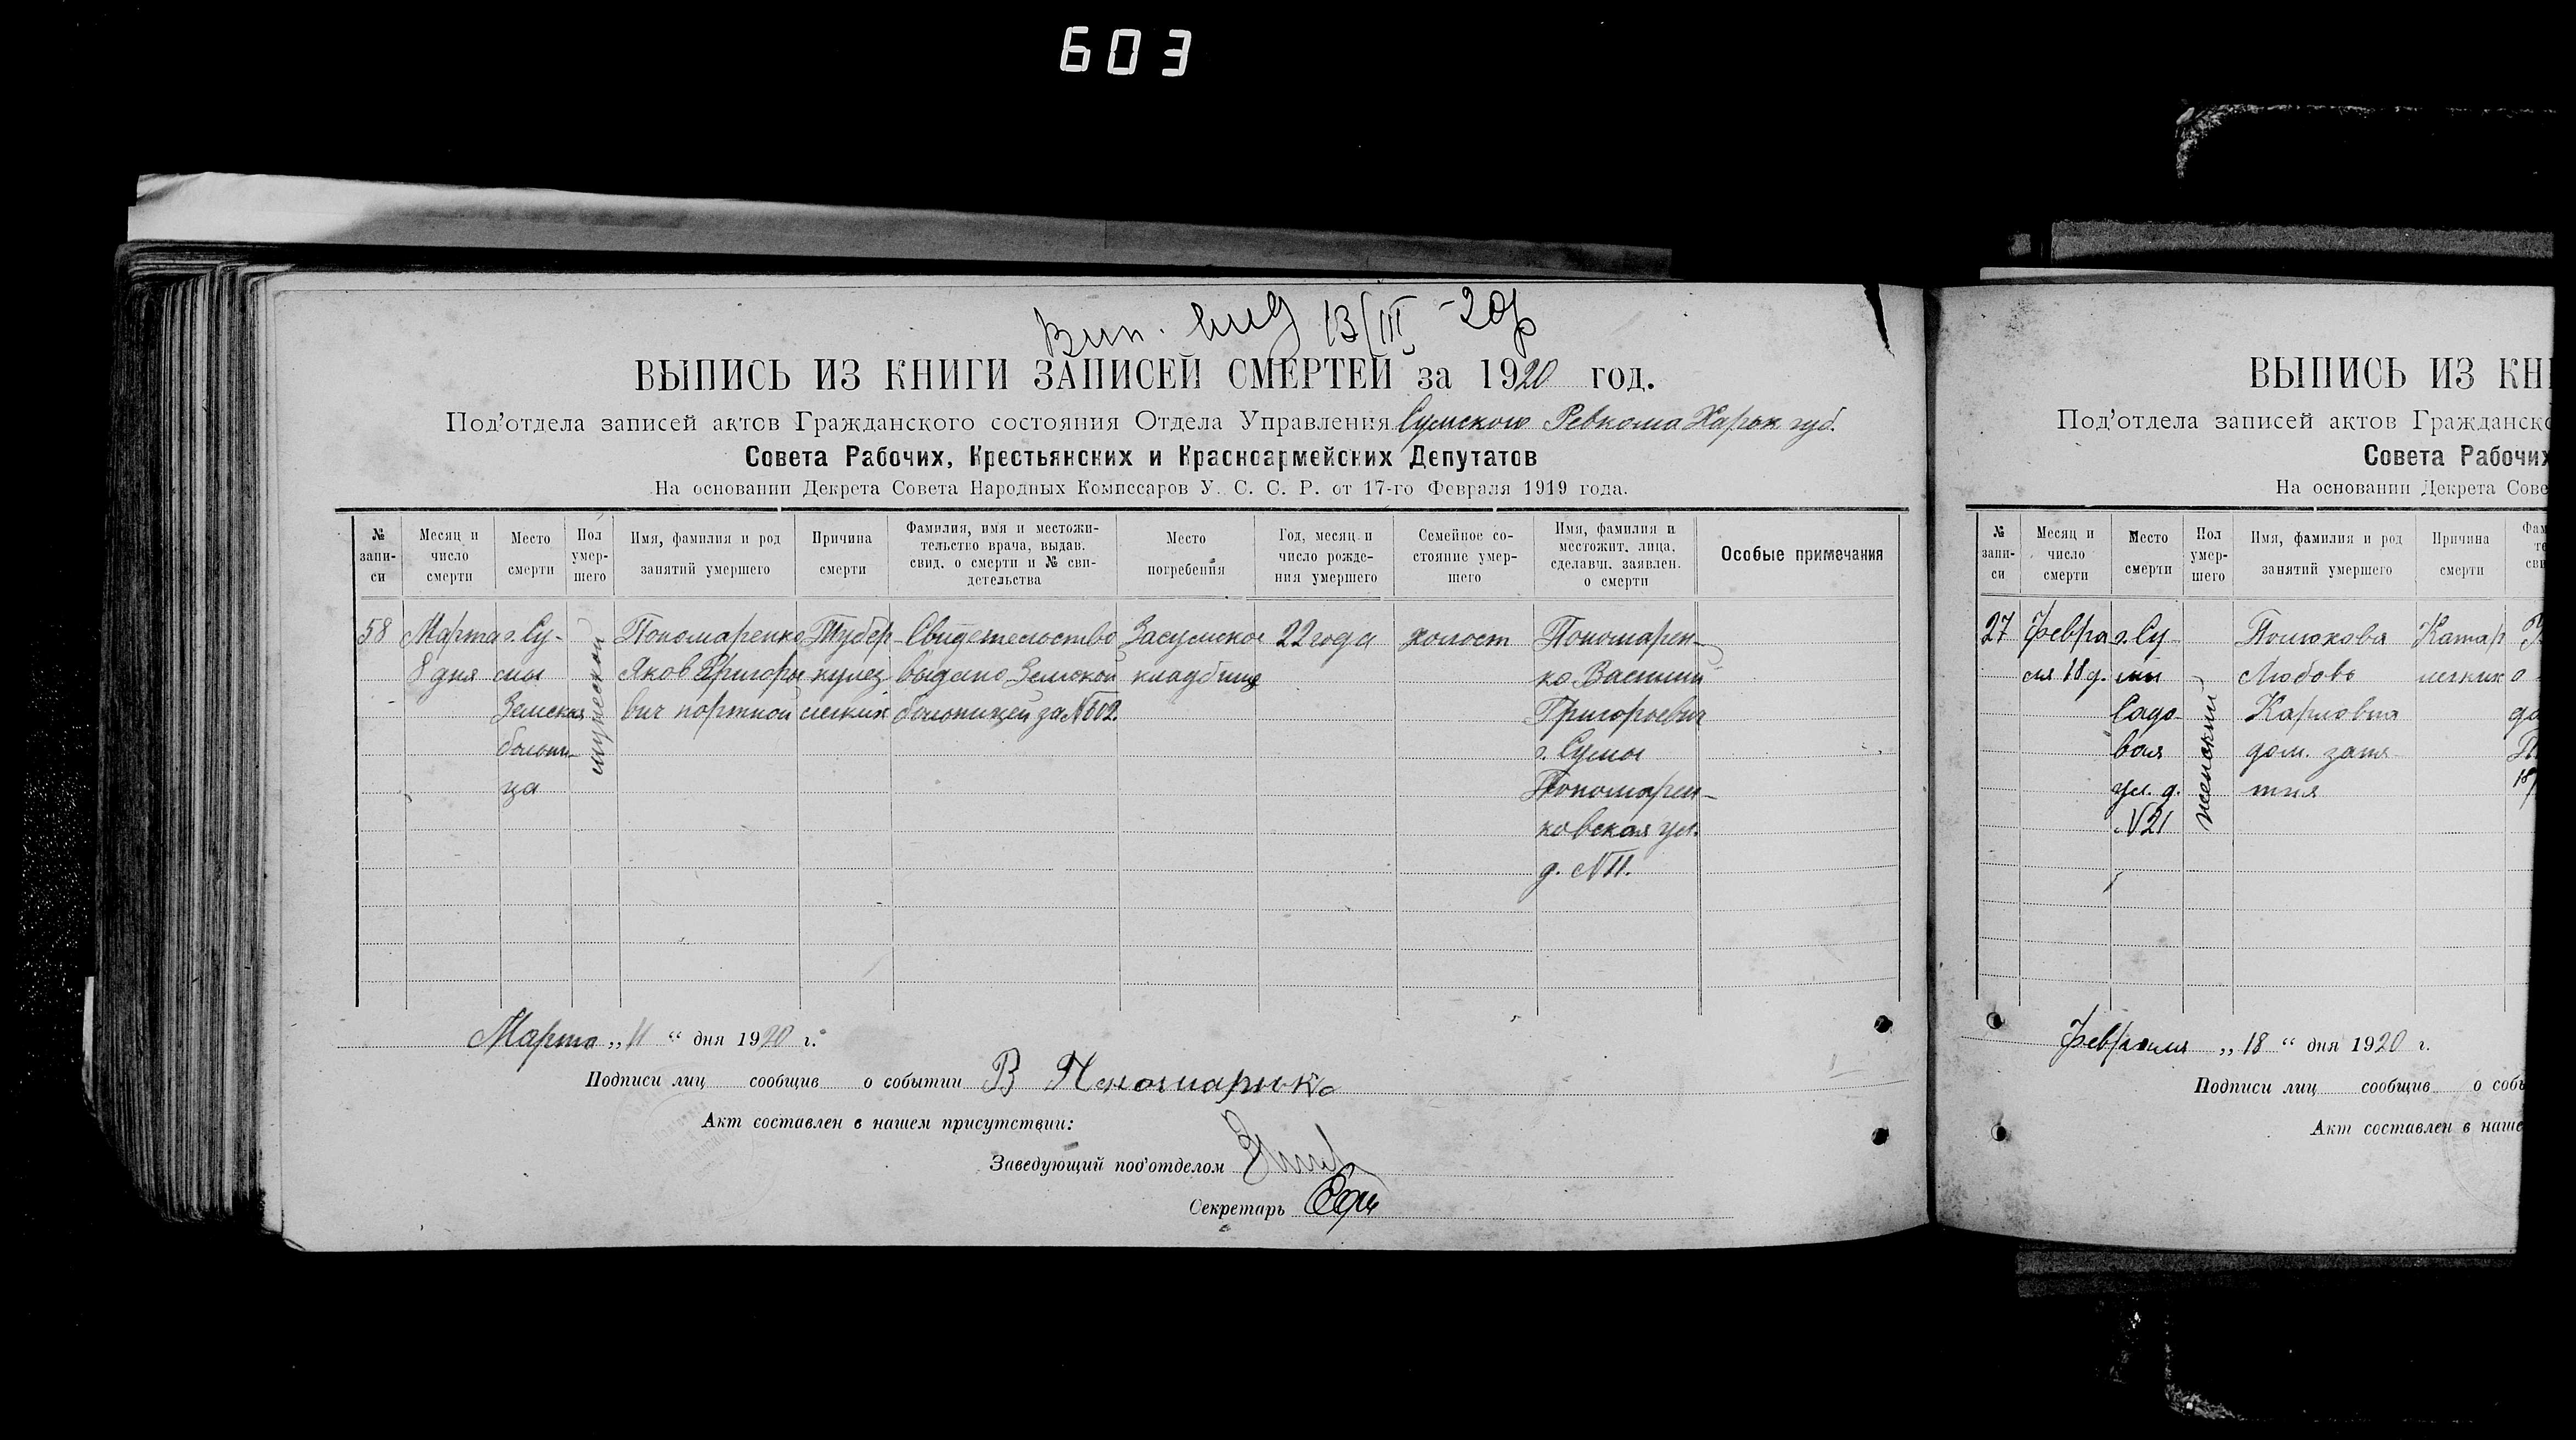 603
Вып. вид 13/III -20 г
ВЫПИСЬ ИЗ КНИГИ ЗАПИСЕЙ СМЕРТЕЙ за 1920 год.
Под'отдела записей актов Гражданского состояния Отдела Управления Сумского Ревкома Харьк губ.
Совета Рабочих, Крестьянских и Красноармейских Депутатов
На основании Декрета Совета Народных Комиссаров У. С. С. Р. от 17-го Февраля 1919 года.
№ запи-
си
Месяц и
число
смерти
Место
смерти
Пол
умер-
шего
Имя, фамилия и род
занятий умершего
Причина
смерти
Фамилия, имя и местожи-
тельство врача, выдав.
свид. о смерти и № сви-
детельства
Место
погребения
Год, месяц и
число рожде-
ния умершего
Семейное со-
стояние умер-
шего
Имя, фамилия и
местожит. лица,
сделавш. заявлен.
о смерти
Особые примечания
58
Марта
8 дня
г. Су-
мы
Земская
больни-
ца
мужеской
Пономаренко
Яков Григорь
вич портной
Тубер-
кулез
легких
Свидетельство
выдано Земской
больницей за №602.
Засумское
кладбище
22 года
холост
Пономарен-
ко Василий
Григорьевич
г. Сумы
Пономарен-
ковская ул.
д. №11.
Марта „11“ дня 1920 г.
Подписи лиц сообщив о событии В Пономаренко
Акт составлен в нашем присутствии:
Заведующий под'отделом
Секретарь
ВЫПИСЬ ИЗ КН
Под'отдела записей актов Гражданск
Совета Рабочих
На основании Декрета Сове
№
запи-
си
Месяц и
число
смерти
Место
смерти
Пол
умер-
шего
Имя, фамилия и род
занятий умершего
Причина
смерти
Фам
те
сви
27
Февра
ля 18 д.
г. Су
мы
Садо-
вая
ул. д.
№21
женский
Полюкова
Любовь
Карловна
дом. заня-
тия
Катар
легких
Февраля „18“ дня 1920 г.
Подписи лиц сообщив о собы
Акт составлен в наше